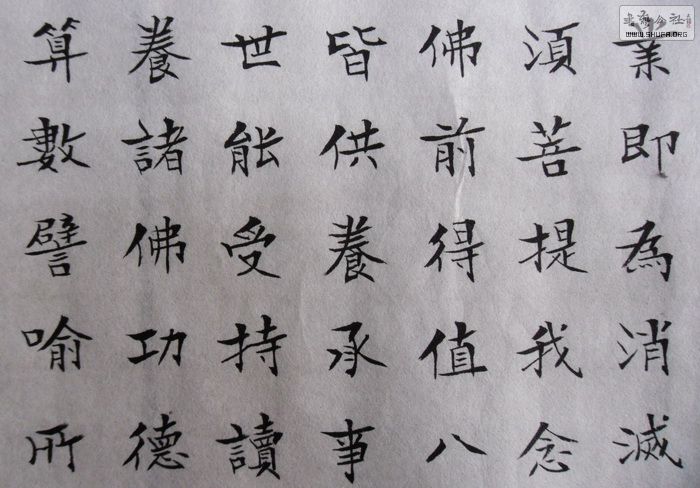 業即為消滅
須菩提我念
佛前得值八
皆供養承事
世能受持讀
養諸佛功德
算數譬喻所
WWW.SHUFA.ORG